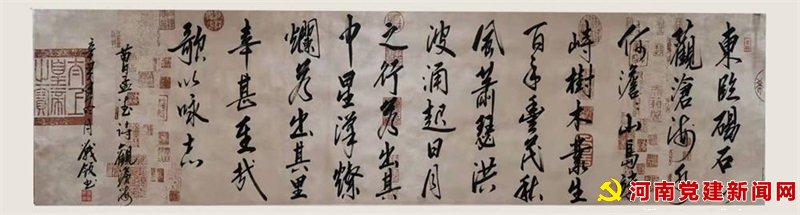 東臨碣石以
觀滄海水
何澹山島竦
峙樹木叢生
百草豐茂秋
風蕭瑟洪
波涌起日月
之行若出其
中星漢燦
爛若出其里
幸甚至哉
歌以咏志
曹孟德诗觀滄海
辛丑年 月 书
太上皇帝之寶
河南党建新闻网